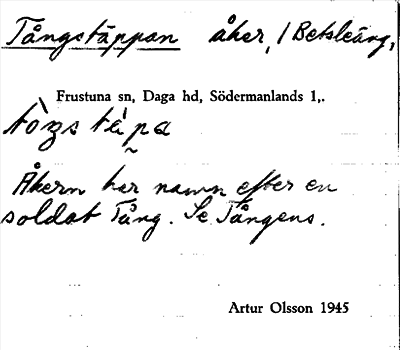 Tångstäppan åker, / Betsleäng,
Frustuna sn, Daga hd, Södermanlands l,.
tòŋs tɛ̀pa
Åkern har namn efter en
soldat Tång. Se Tångens.
Artur Olsson 1945